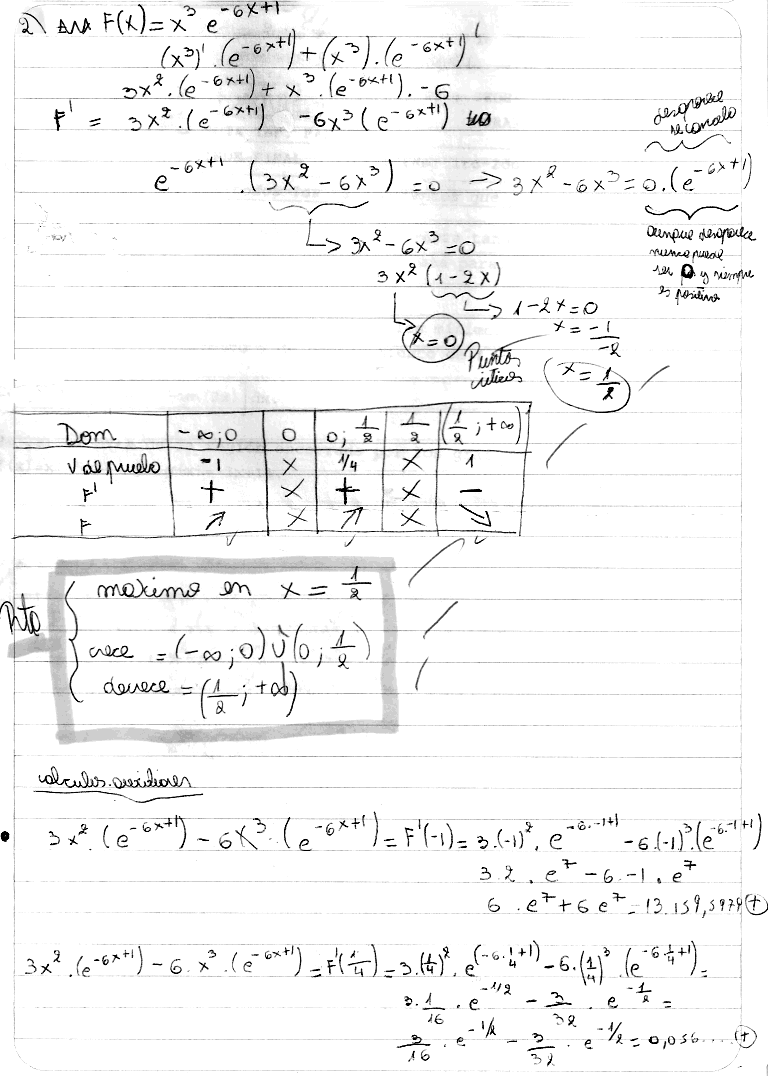 2) F(x) = x³ e^(-6x+1)
(x³)' . (e^(-6x+1)) + (x³) . (e^(-6x+1))'
3x² . (e^(-6x+1)) + x³ . (e^(-6x+1)) . -6
F' = 3x² . (e^(-6x+1)) - 6x³ (e^(-6x+1))
desaparece
se cancela
e^(-6x+1) . (3x² - 6x³) = 0 → 3x² - 6x³ = 0 . (e^(-6x+1))
aunque desaparece
nunca puede
ser 0 y siempre
es positivo
↳ 3x² - 6x³ = 0
3x² (1 - 2x)
↳ 1 - 2x = 0
x = 0
x = -1/-2
Puntos
criticos
x = 1/2
Dom | -∞;0 | 0 | 0; 1/2 | 1/2 | (1/2; +∞)
V de prueba | -1 | X | 1/4 | X | 1
F' | + | X | + | X | -
F | ↗ | X | ↗ | X | ↘
Rta
maximo en x = 1/2
crece = (-∞;0) U (0; 1/2)
decrece = (1/2; +∞)
calculos auxiliares
• 3x² . (e^(-6x+1)) - 6x³ . (e^(-6x+1)) = F'(-1) = 3.(-1)² . e^(-6.-1+1) - 6.(-1)³.(e^(-6.-1+1))
3.2 . e⁷ - 6.-1 . e⁷
6 . e⁷ + 6 e⁷ = 13.159,5979 (+)
3x² . (e^(-6x+1)) - 6 . x³ . (e^(-6x+1)) = F'(1/4) = 3.(1/4)² . e^(-6.1/4+1) - 6.(1/4)³ . (e^(-6 1/4+1)) =
3.1/16 . e^(-1/2) - 3/32 . e^(-1/2) =
3/16 . e^(-1/2) - 3/32 . e^(-1/2) = 0,056.... (+)